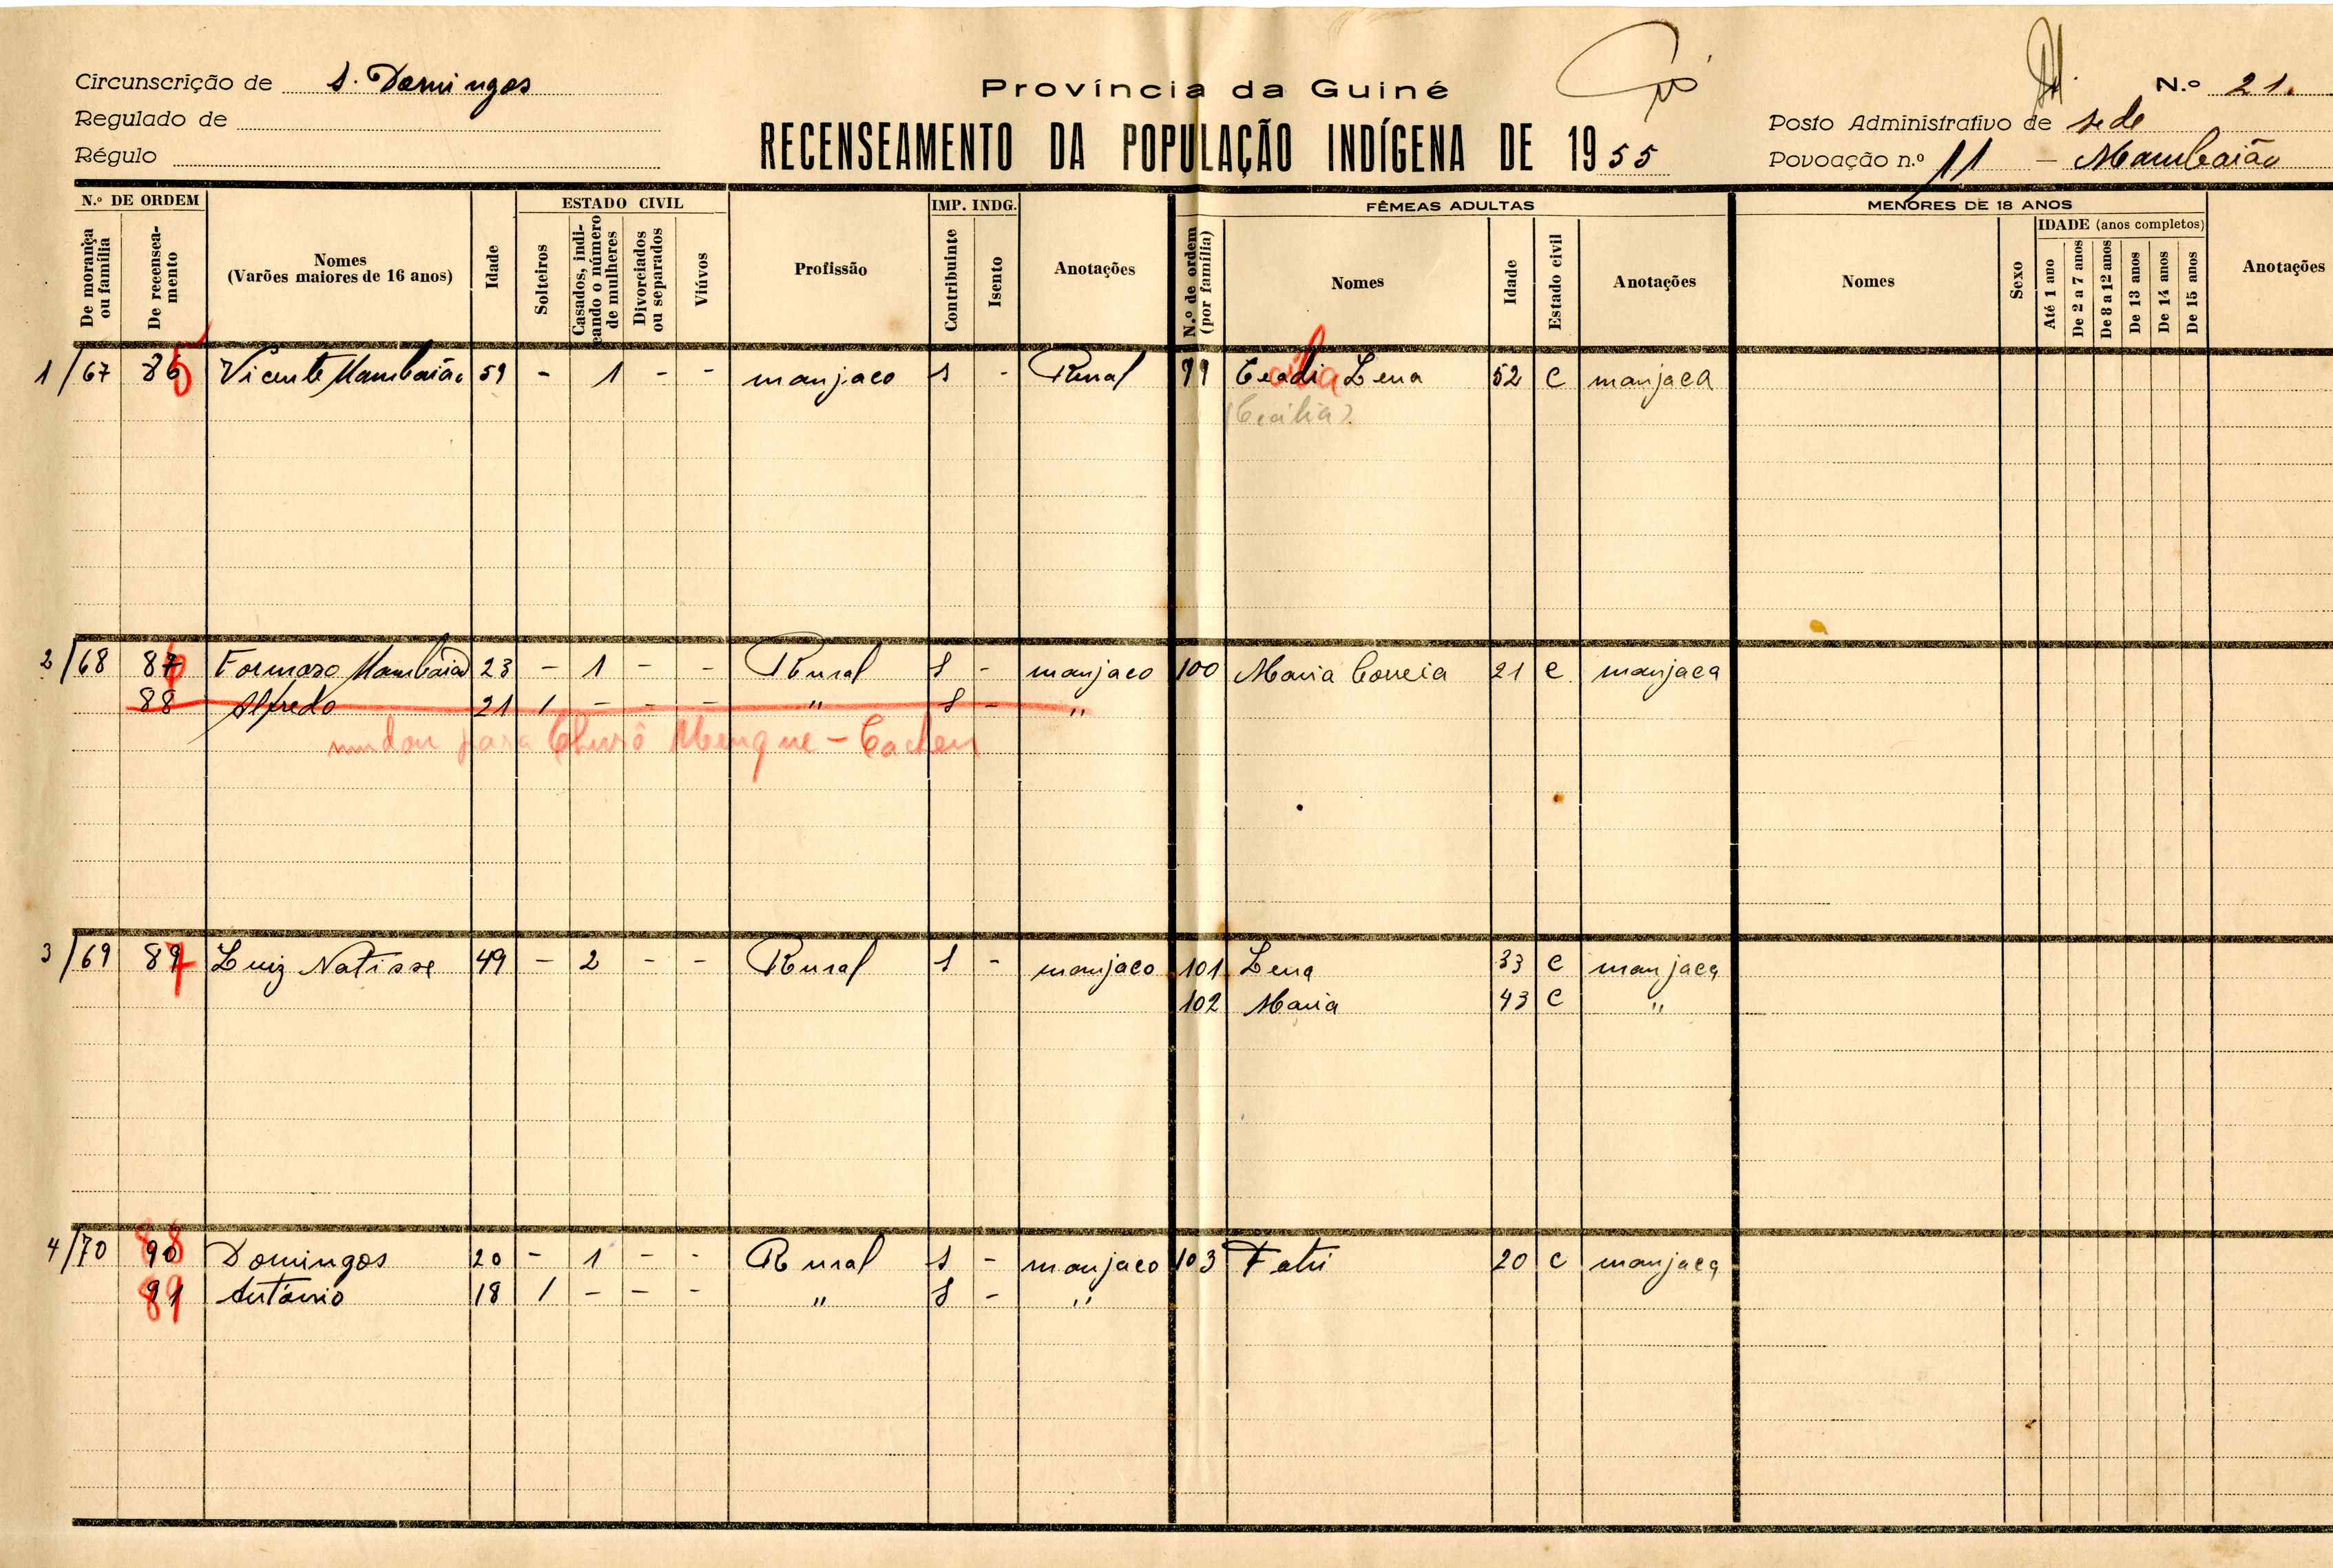 Circunscrição de S. Domingos
Regulado de
Régulo
Província da Guiné
RECENSEAMENTO DA POPULAÇÃO INDÍGENA DE 1955
N.º 21.
Posto Administrativo de sede
Povoação n.º 11 - Mambaião
N.º DE ORDEM
De morança ou família
De recenseamento
Nomes
(Varões maiores de 16 anos)
Idade
ESTADO CIVIL
Solteiros
Casados, indicando o número de mulheres
Divorciados ou separados
Viúvos
Profissão
IMP. INDG.
Contribuinte
Isento
Anotações
FÊMEAS ADULTAS
N.º de ordem (por família)
Nomes
Idade
Estado civil
Anotações
MENORES DE 18 ANOS
Nomes
Sexo
IDADE (anos completos)
Até 1 ano
De 2 a 7 anos
De 8 a 12 anos
De 13 anos
De 14 anos
De 15 anos
Anotações
1/67 86 5 Vicente Mambaião 59 - 1 - - manjaco 1 - Rural 99 Lena 52 C manjaca
(Cecília)
2/68 87 6 Formoso Mambaião 23 - 1 - - Rural 1 - manjaco 100 Maria Correia 21 C manjaca
88 Alfredo 21 1 - - - " 1 - "
mudou para Churô Menque - Cacheu
3/69 89 7 Luiz Natisse 49 - 2 - - Rural 1 - manjaco 101 Lena 33 C manjaca
102 Maria 43 C "
4/70 90 88 Domingos 20 - 1 - - Rural 1 - manjaco 103 Fatu 20 C manjaca
91 89 António 18 1 - - - " 1 - "